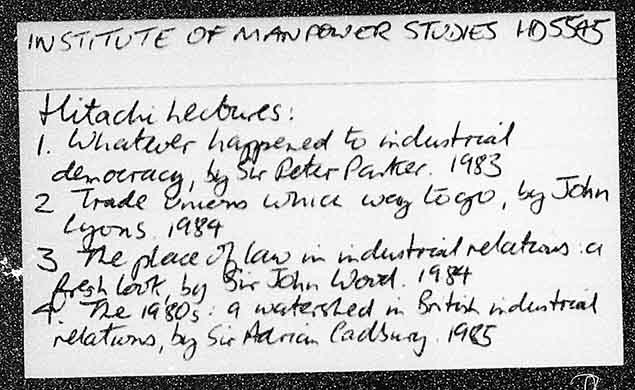 INSTITUTE OF MANPOWER STUDIES HD55A5
Hitachi Lectures:
1. Whatever happened to industrial
democracy, by Sir Peter Parker. 1983
2 Trade unions which way to go, by John
Lyons. 1984
3 The place of law in industrial relations: a
fresh look, by Sir John Wood. 1984
4. The 1980s: a watershed in British industrial
relations, by Sir Adrian Cadbury. 1985